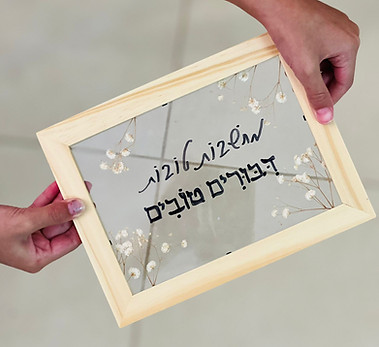 מחשבות טובות
דִּבּוּרִים טוֹבִים